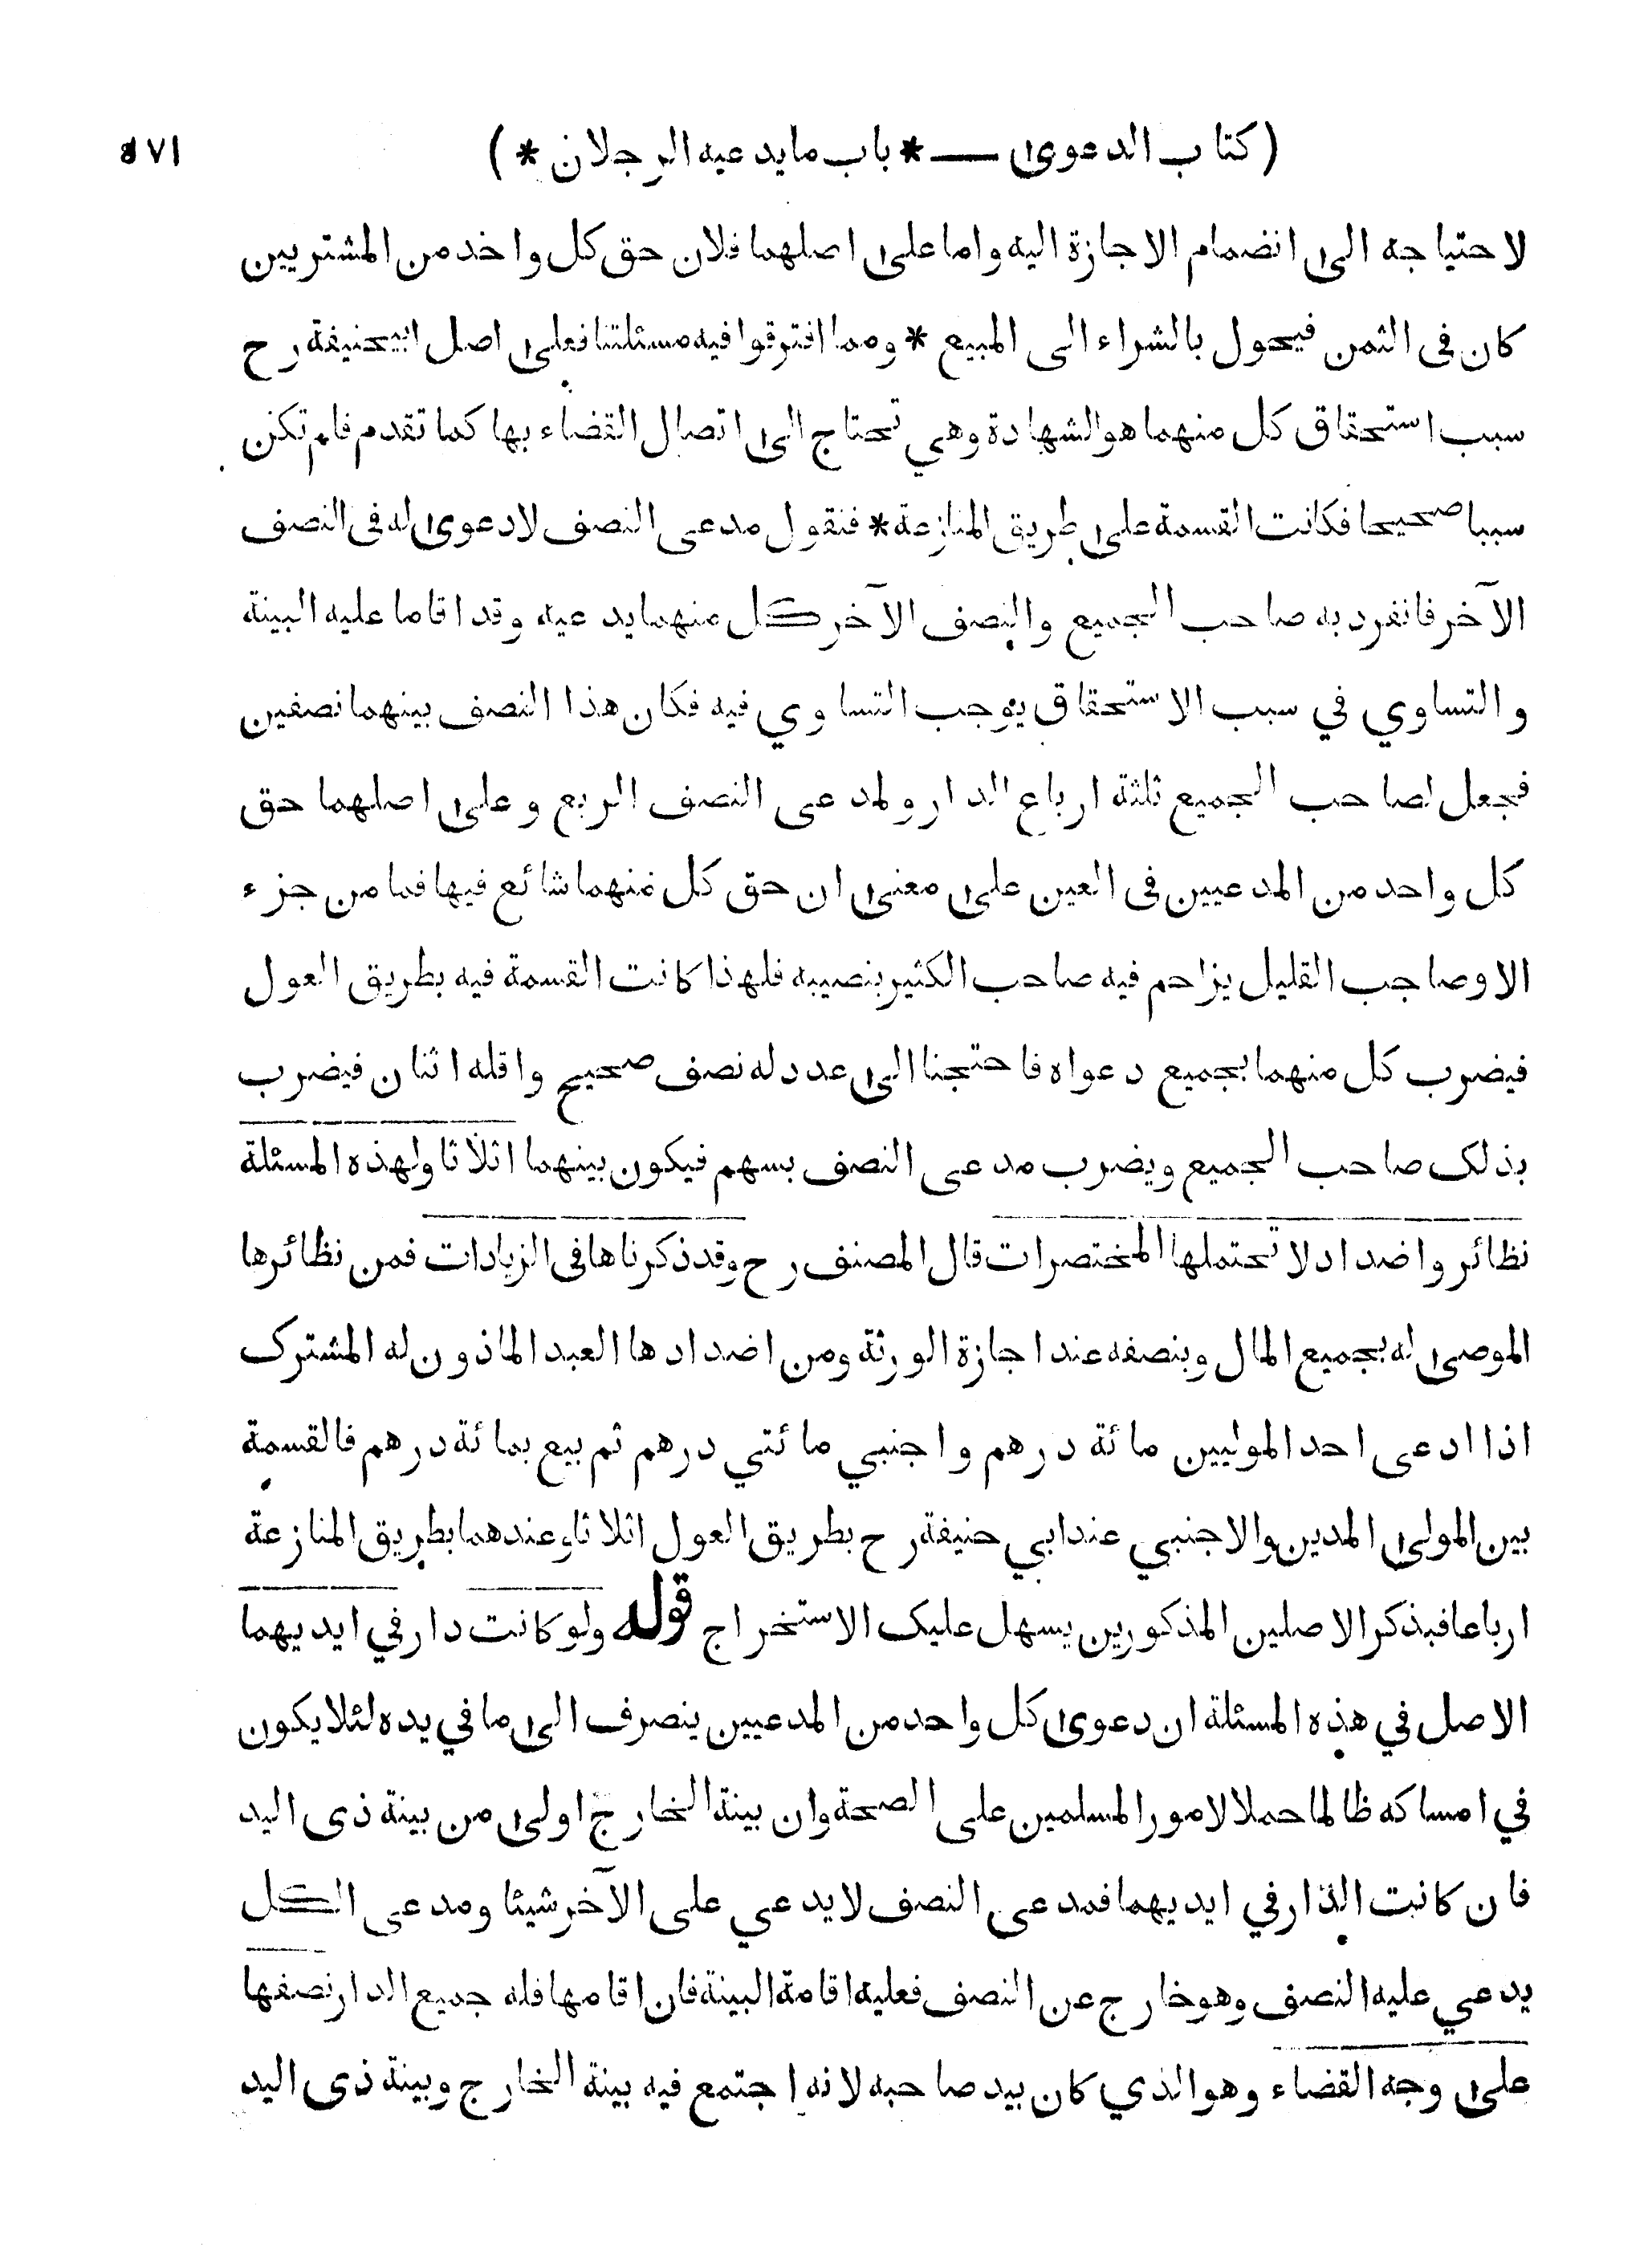 ( كتاب الدعوى — * باب ما يدعيه الرجلان * )
٥٧١
لاحتياجه الى انضمام الاجازة اليه واما على اصلهما فلان حق كل واحد من المشتريين
كان فى الثمن فيحول بالشراء الى المبيع * ومما افترقوا فيه مسئلتنا فعلى اصل ابيحنيفة رح
سبب استحقاق كل منهما هو الشهادة وهي تحتاج الى اتصال القضاء بها كما تقدم فلم تكن
سببا صحيحا فكانت القسمة على طريق المنازعة * فنقول مدعى النصف لا دعوى له فى النصف
الآخر فانفرد به صاحب الجميع والنصف الآخر كل منهما يدعيه وقد اقاما عليه البينة
والتساوي في سبب الاستحقاق يوجب التساوي فيه فكان هذا النصف بينهما نصفين
فجعل لصاحب الجميع ثلثة ارباع الدار ولمدعى النصف الربع وعلى اصلهما حق
كل واحد من المدعيين فى العين على معنى ان حق كل منهما شائع فيها فما من جزء
الا وصاحب القليل يزاحم فيه صاحب الكثير بنصيبه فلهذا كانت القسمة فيه بطريق العول
فيضرب كل منهما بجميع دعواه فاحتجنا الى عدد له نصف صحيح واقله اثنان فيضرب
بذلك صاحب الجميع ويضرب مدعى النصف بسهم فيكون بينهما اثلاثا ولهذه المسئلة
نظائر واضداد لا تحتملها المختصرات قال المصنف رح وقد ذكرناها فى الزيادات فمن نظائرها
الموصى له بجميع المال وبنصفه عند اجازة الورثة ومن اضدادها العبد الماذون له المشترك
اذا ادعى احد الموليين مائة درهم واجنبي مائتي درهم ثم بيع بمائة درهم فالقسمة
بين المولى المدين والاجنبي عند ابي حنيفة رح بطريق العول اثلاثا وعندهما بطريق المنازعة
ارباعا فبذكر الاصلين المذكورين يسهل عليك الاستخراج قوله ولو كانت دار في ايديهما
الاصل في هذه المسئلة ان دعوى كل واحد من المدعيين ينصرف الى ما في يده لئلا يكون
في امساكه ظالما حملا لامور المسلمين على الصحة وان بينة الخارج اولى من بينة ذى اليد
فان كانت الدار في ايديهما فمدعى النصف لا يدعي على الآخر شيئا ومدعى الكل
يدعي عليه النصف وهو خارج عن النصف فعليه اقامة البينة فان اقامها فله جميع الدار نصفها
على وجه القضاء وهو الذي كان بيد صاحبه لانه اجتمع فيه بينة الخارج وبينة ذى اليد